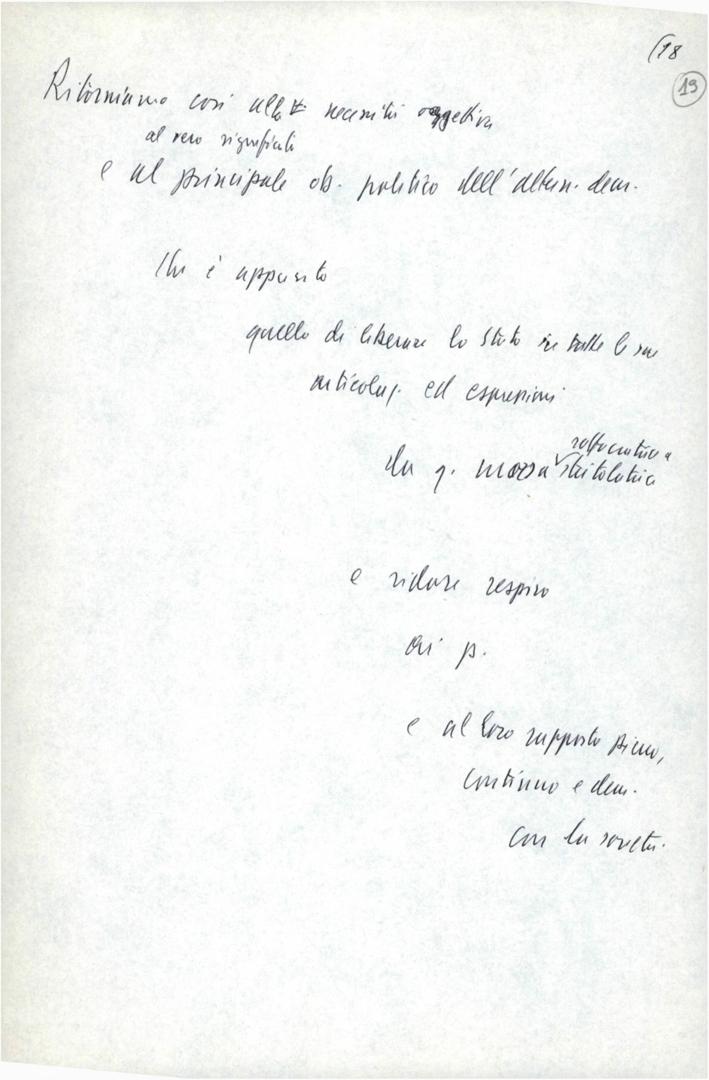 (18
19
Ritorniamo così alla necessità oggettiva
al vero significato
e al principale ob. politico dell'altern. dem.
Che è appunto
quello di liberare lo Stato in tutte le sue
articolaz. ed espressioni
da q. morsa stritolatrice
soffocatrice
e ridare respiro
ai p.
e al loro rapporto pieno,
continuo e dem.
con la società.